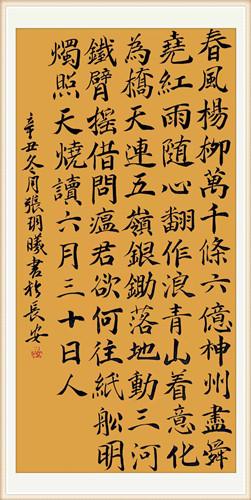 春風楊柳萬千條六億神州盡舜
堯紅雨隨心翻作浪青山着意化
為橋天連五嶺銀鋤落地動三河
鐵臂搖借問瘟君欲何往紙舩明
燭照天燒讀六月三十日人
辛丑冬月張玥曦書於長安